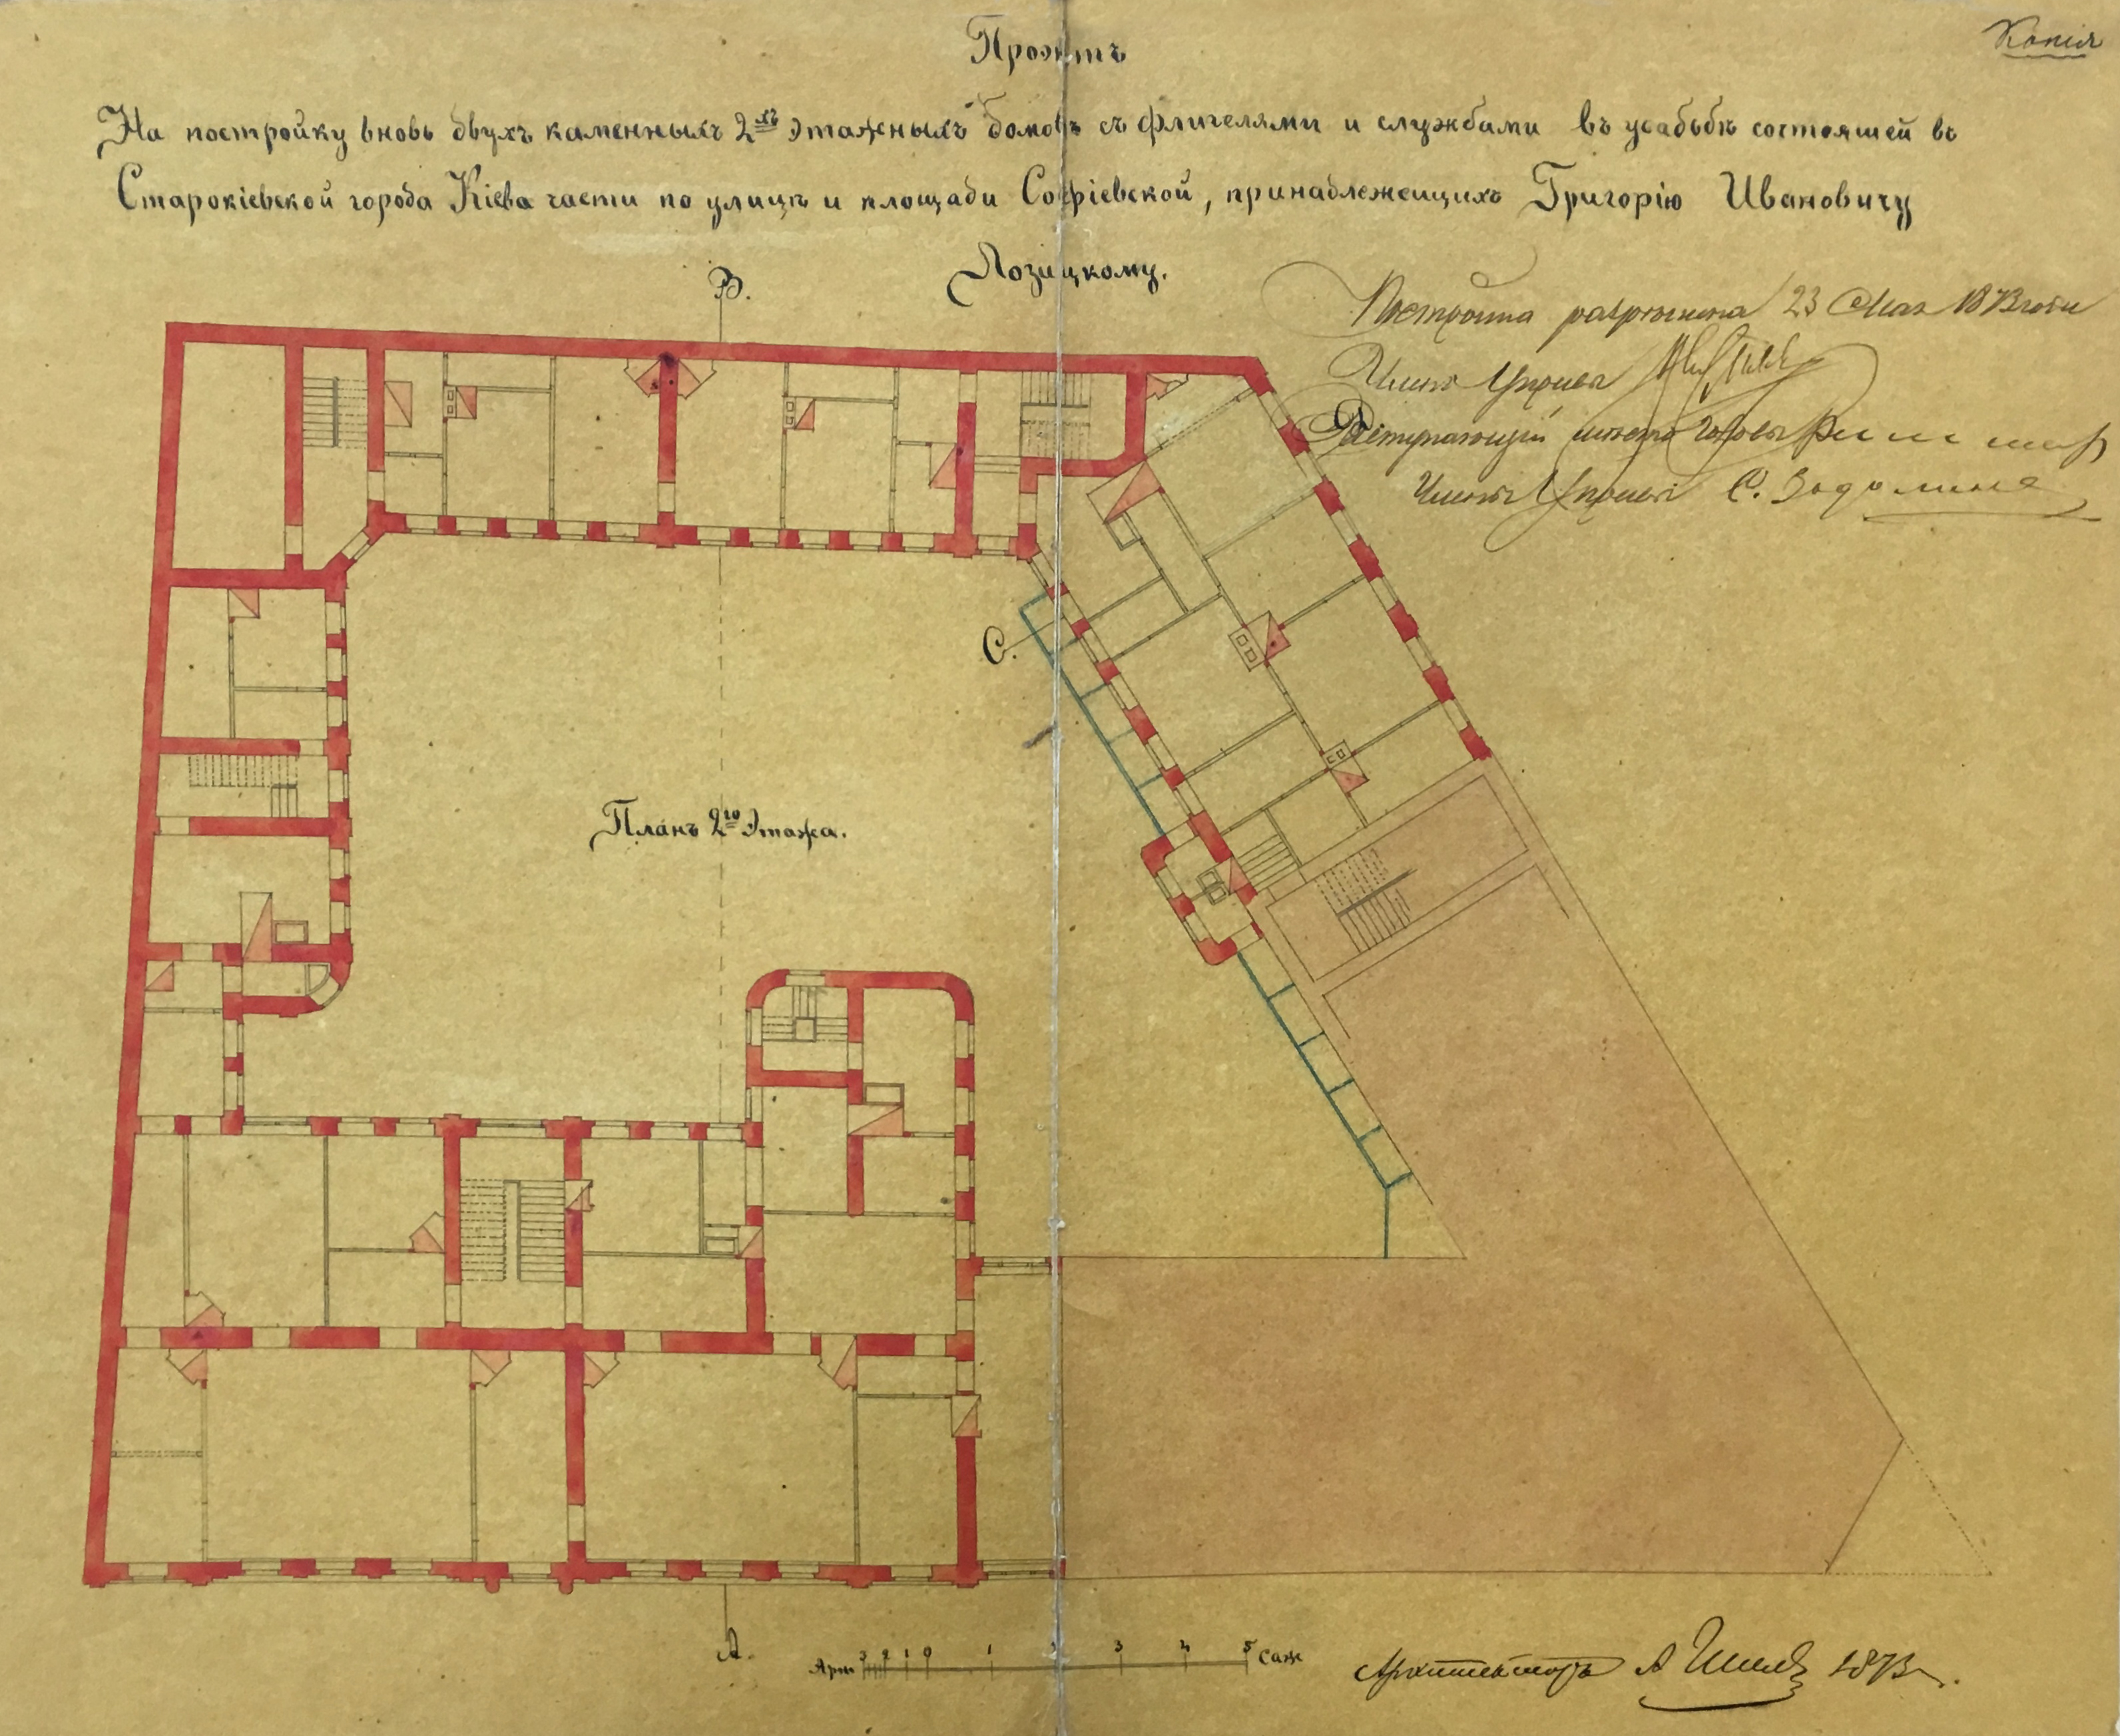 Копія
Проэктъ
На постройку вновь двухъ каменныхъ 2хъ этажныхъ домовъ съ флигелями и службами въ усадьбѣ состоящей въ
Старокіевской города Кіева части по улицѣ и площади Софіевской, принадлежащихъ Григорію Ивановичу
Лозицкому.
В.
Постройка разрѣшена 23 Мая 1873 года
Членъ Управы
Членъ Управы С.
С.
Планъ 2го Этажа.
А.
Арш 3 2 1 0 1 2 3 4 5 Саж
Архитекторъ А Шиле 1873